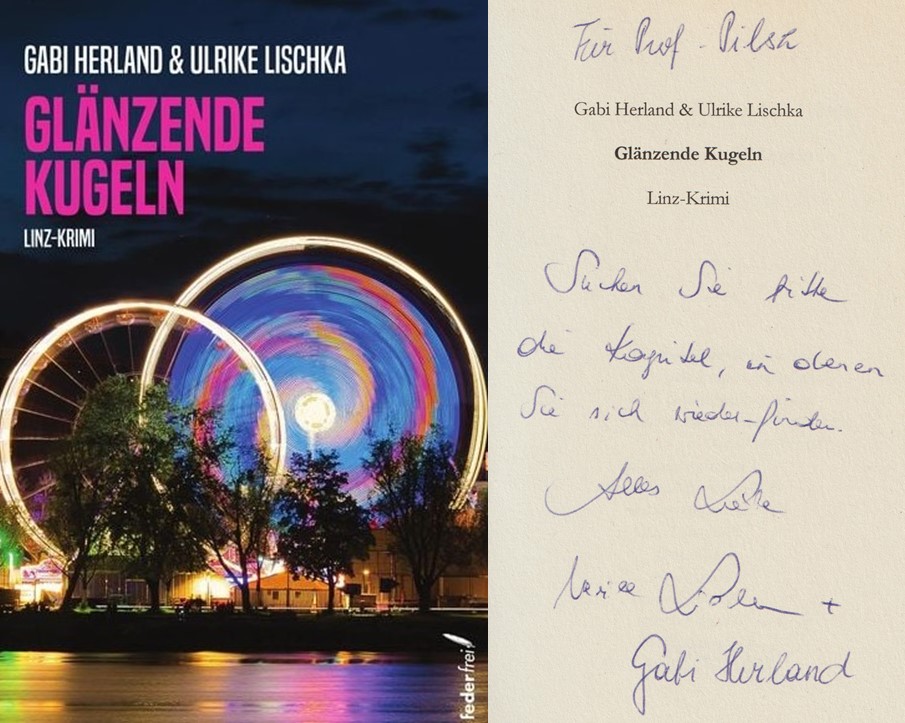 GABI HERLAND & ULRIKE LISCHKA
GLÄNZENDE
KUGELN
LINZ-KRIMI
federfrei
Für Prof. Pilsz
Gabi Herland & Ulrike Lischka
Glänzende Kugeln
Linz-Krimi
Suchen Sie bitte
die Kapitel, in denen
Sie sich wieder-finden.
Alles Liebe
+
Gabi Herland